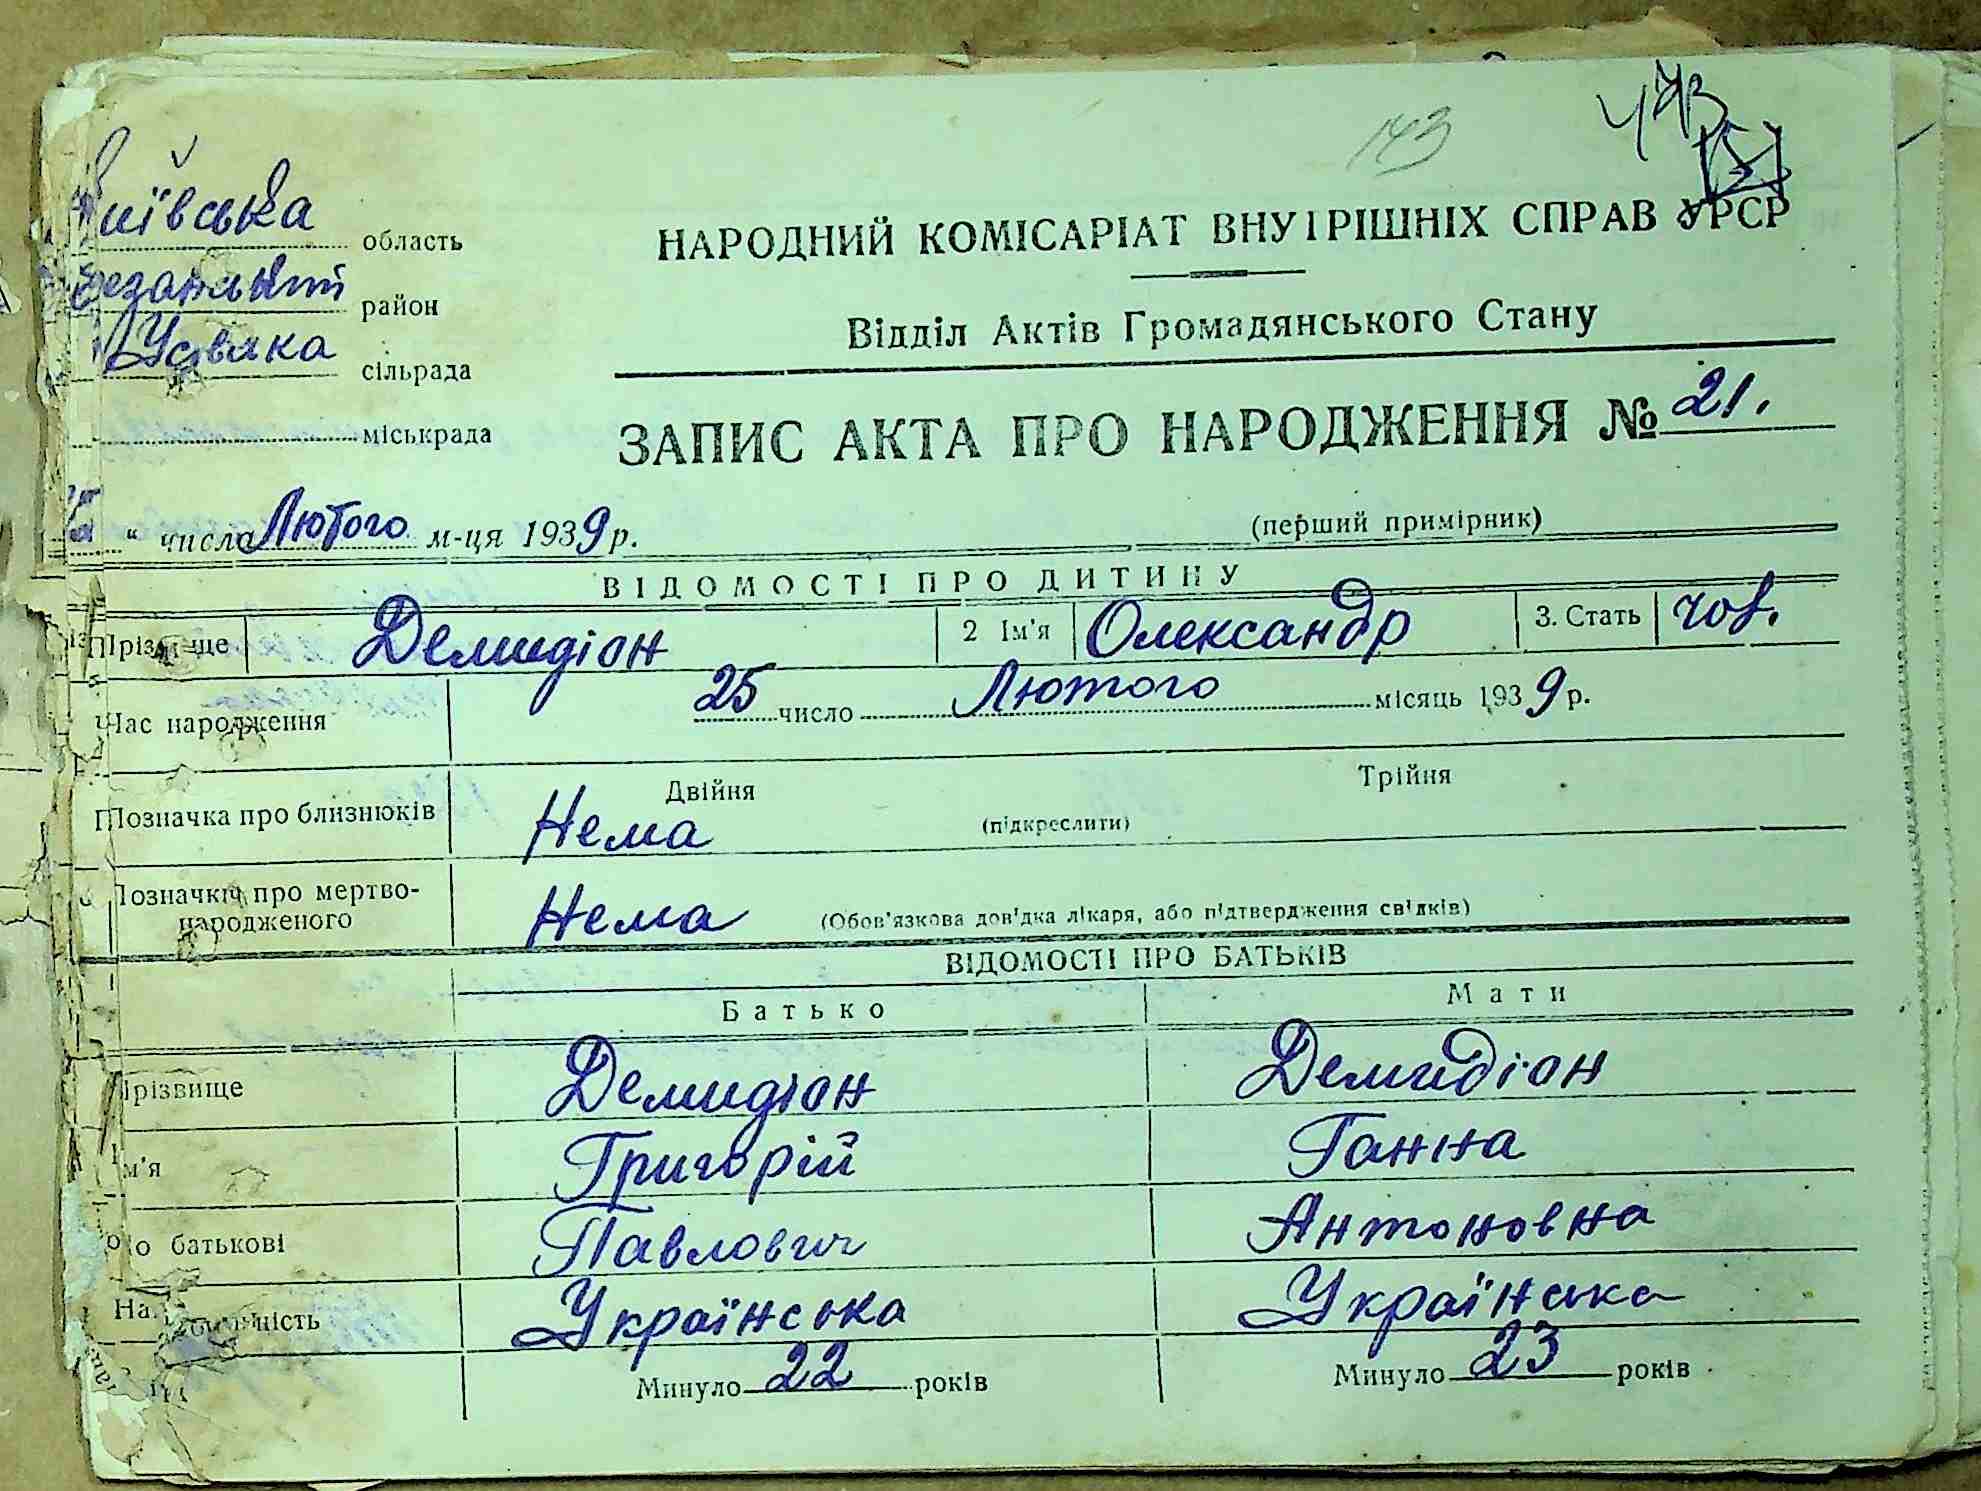 143
иївська область
район
Усівка сільрада
міськрада
НАРОДНИЙ КОМІСАРІАТ ВНУТРІШНІХ СПРАВ УРСР
Відділ Актів Громадянського Стану
ЗАПИС АКТА ПРО НАРОДЖЕННЯ № 21.
“ числа Лютого м-ця 1939 р.
(перший примірник)
ВІДОМОСТІ ПРО ДИТИНУ
Прізвище Демидіон 2 Ім'я Олександр 3. Стать чов.
Час народження 25 число Лютого місяць 1939 р.
Двійня Трійня
Позначка про близнюків Нема (підкреслити)
Позначки про мертво-
народженого Нема (Обов'язкова довідка лікаря, або підтвердження свідків)
ВІДОМОСТІ ПРО БАТЬКІВ
Батько Мати
Прізвище Демидіон Демидіон
м'я Григорій Ганна
о батькові Павлович Антоновна
На ність Українська Українська
Минуло 22 років Минуло 23 років